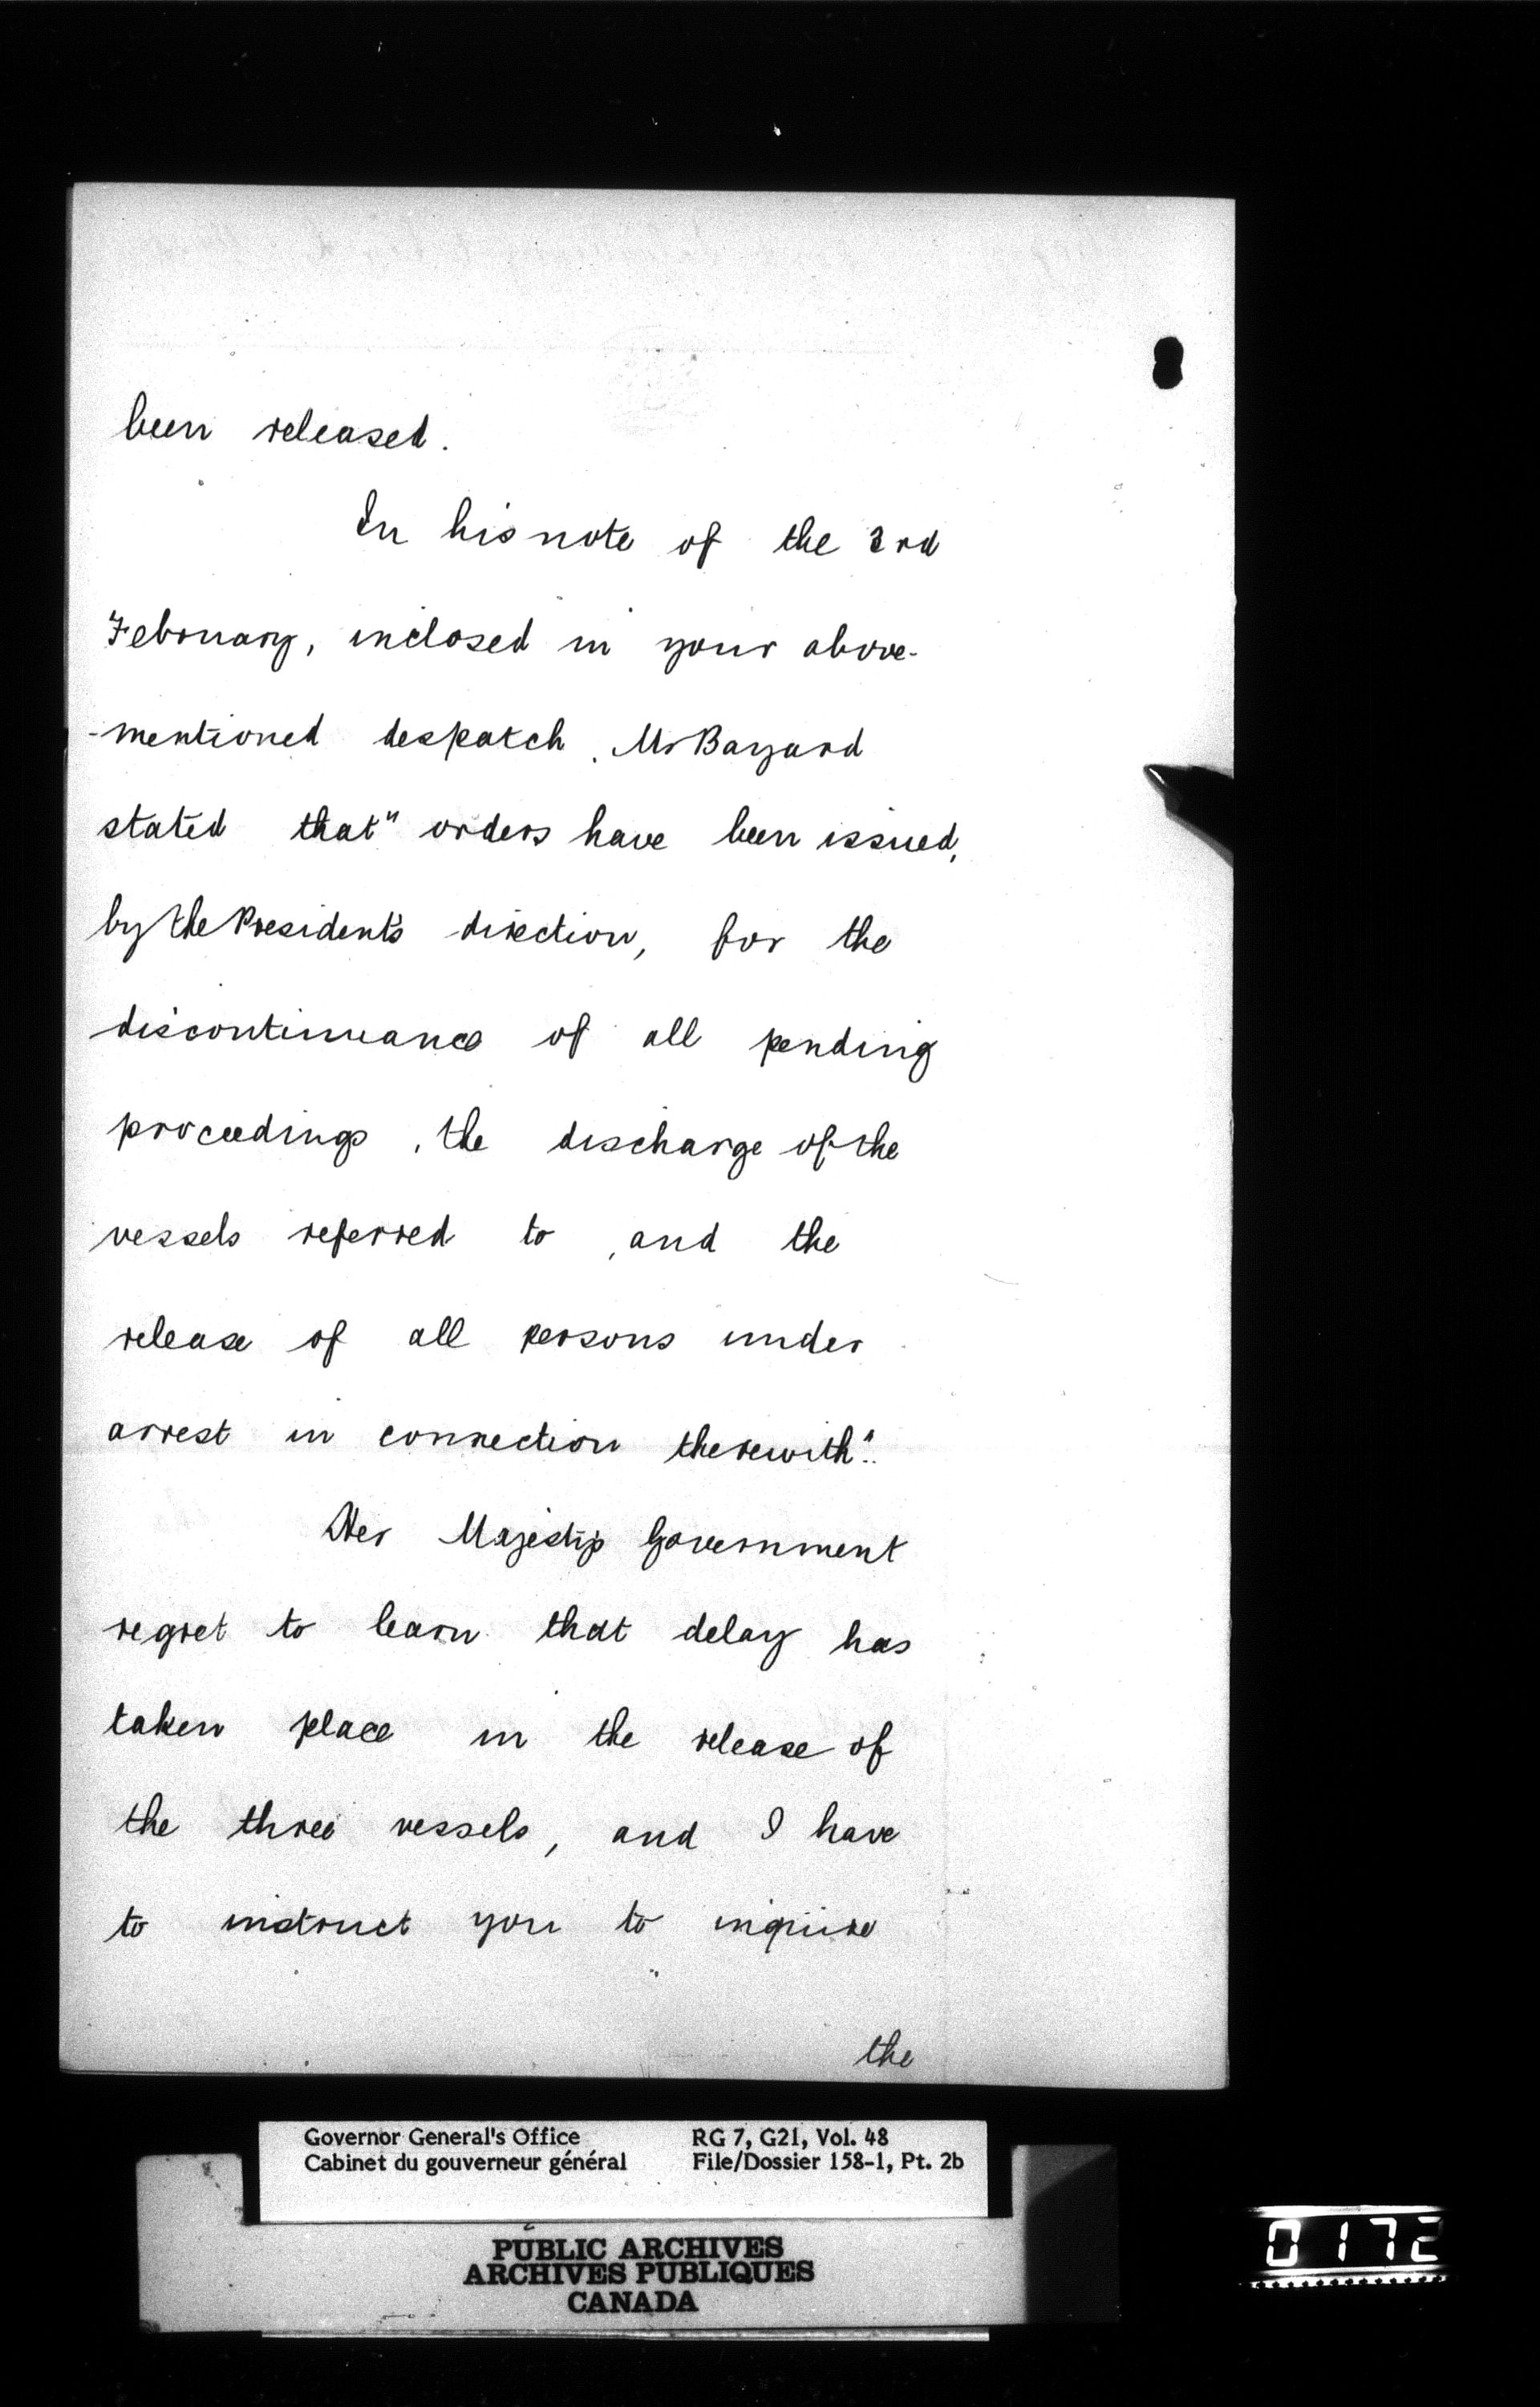 been released.
In his note of the 3rd
February, inclosed in your above-
-mentioned despatch, Mr Bayard
stated that "orders have been issued,
by the President's direction, for the
discontinuance of all pending
proceedings, the discharge of the
vessels referred to, and the
release of all persons under
arrest in connection therewith".
Her Majesty's Government
regret to learn that delay has
taken place in the release of
the three vessels, and I have
to instruct you to inquire
the
Governor General's Office RG 7, G21, Vol. 48
Cabinet du gouverneur général File/Dossier 158-1, Pt. 2b
PUBLIC ARCHIVES
ARCHIVES PUBLIQUES
CANADA
0172